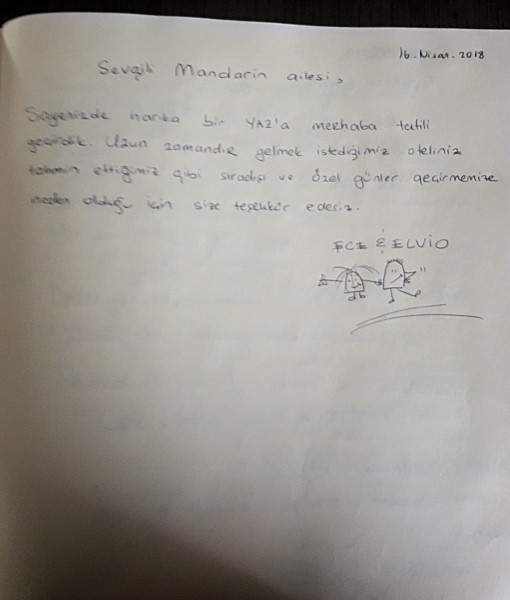 16.Nisan.2018
Sevgili Mandarin ailesi,
Sayenizde harika bir YAZ'a merhaba tatili
geçirdik. Uzun zamandır gelmek istediğimiz oteliniz
tahmin ettiğimiz gibi sıradışı ve özel günler geçirmemize
neden olduğu için size teşekkür ederiz.
ECE & ELVİO